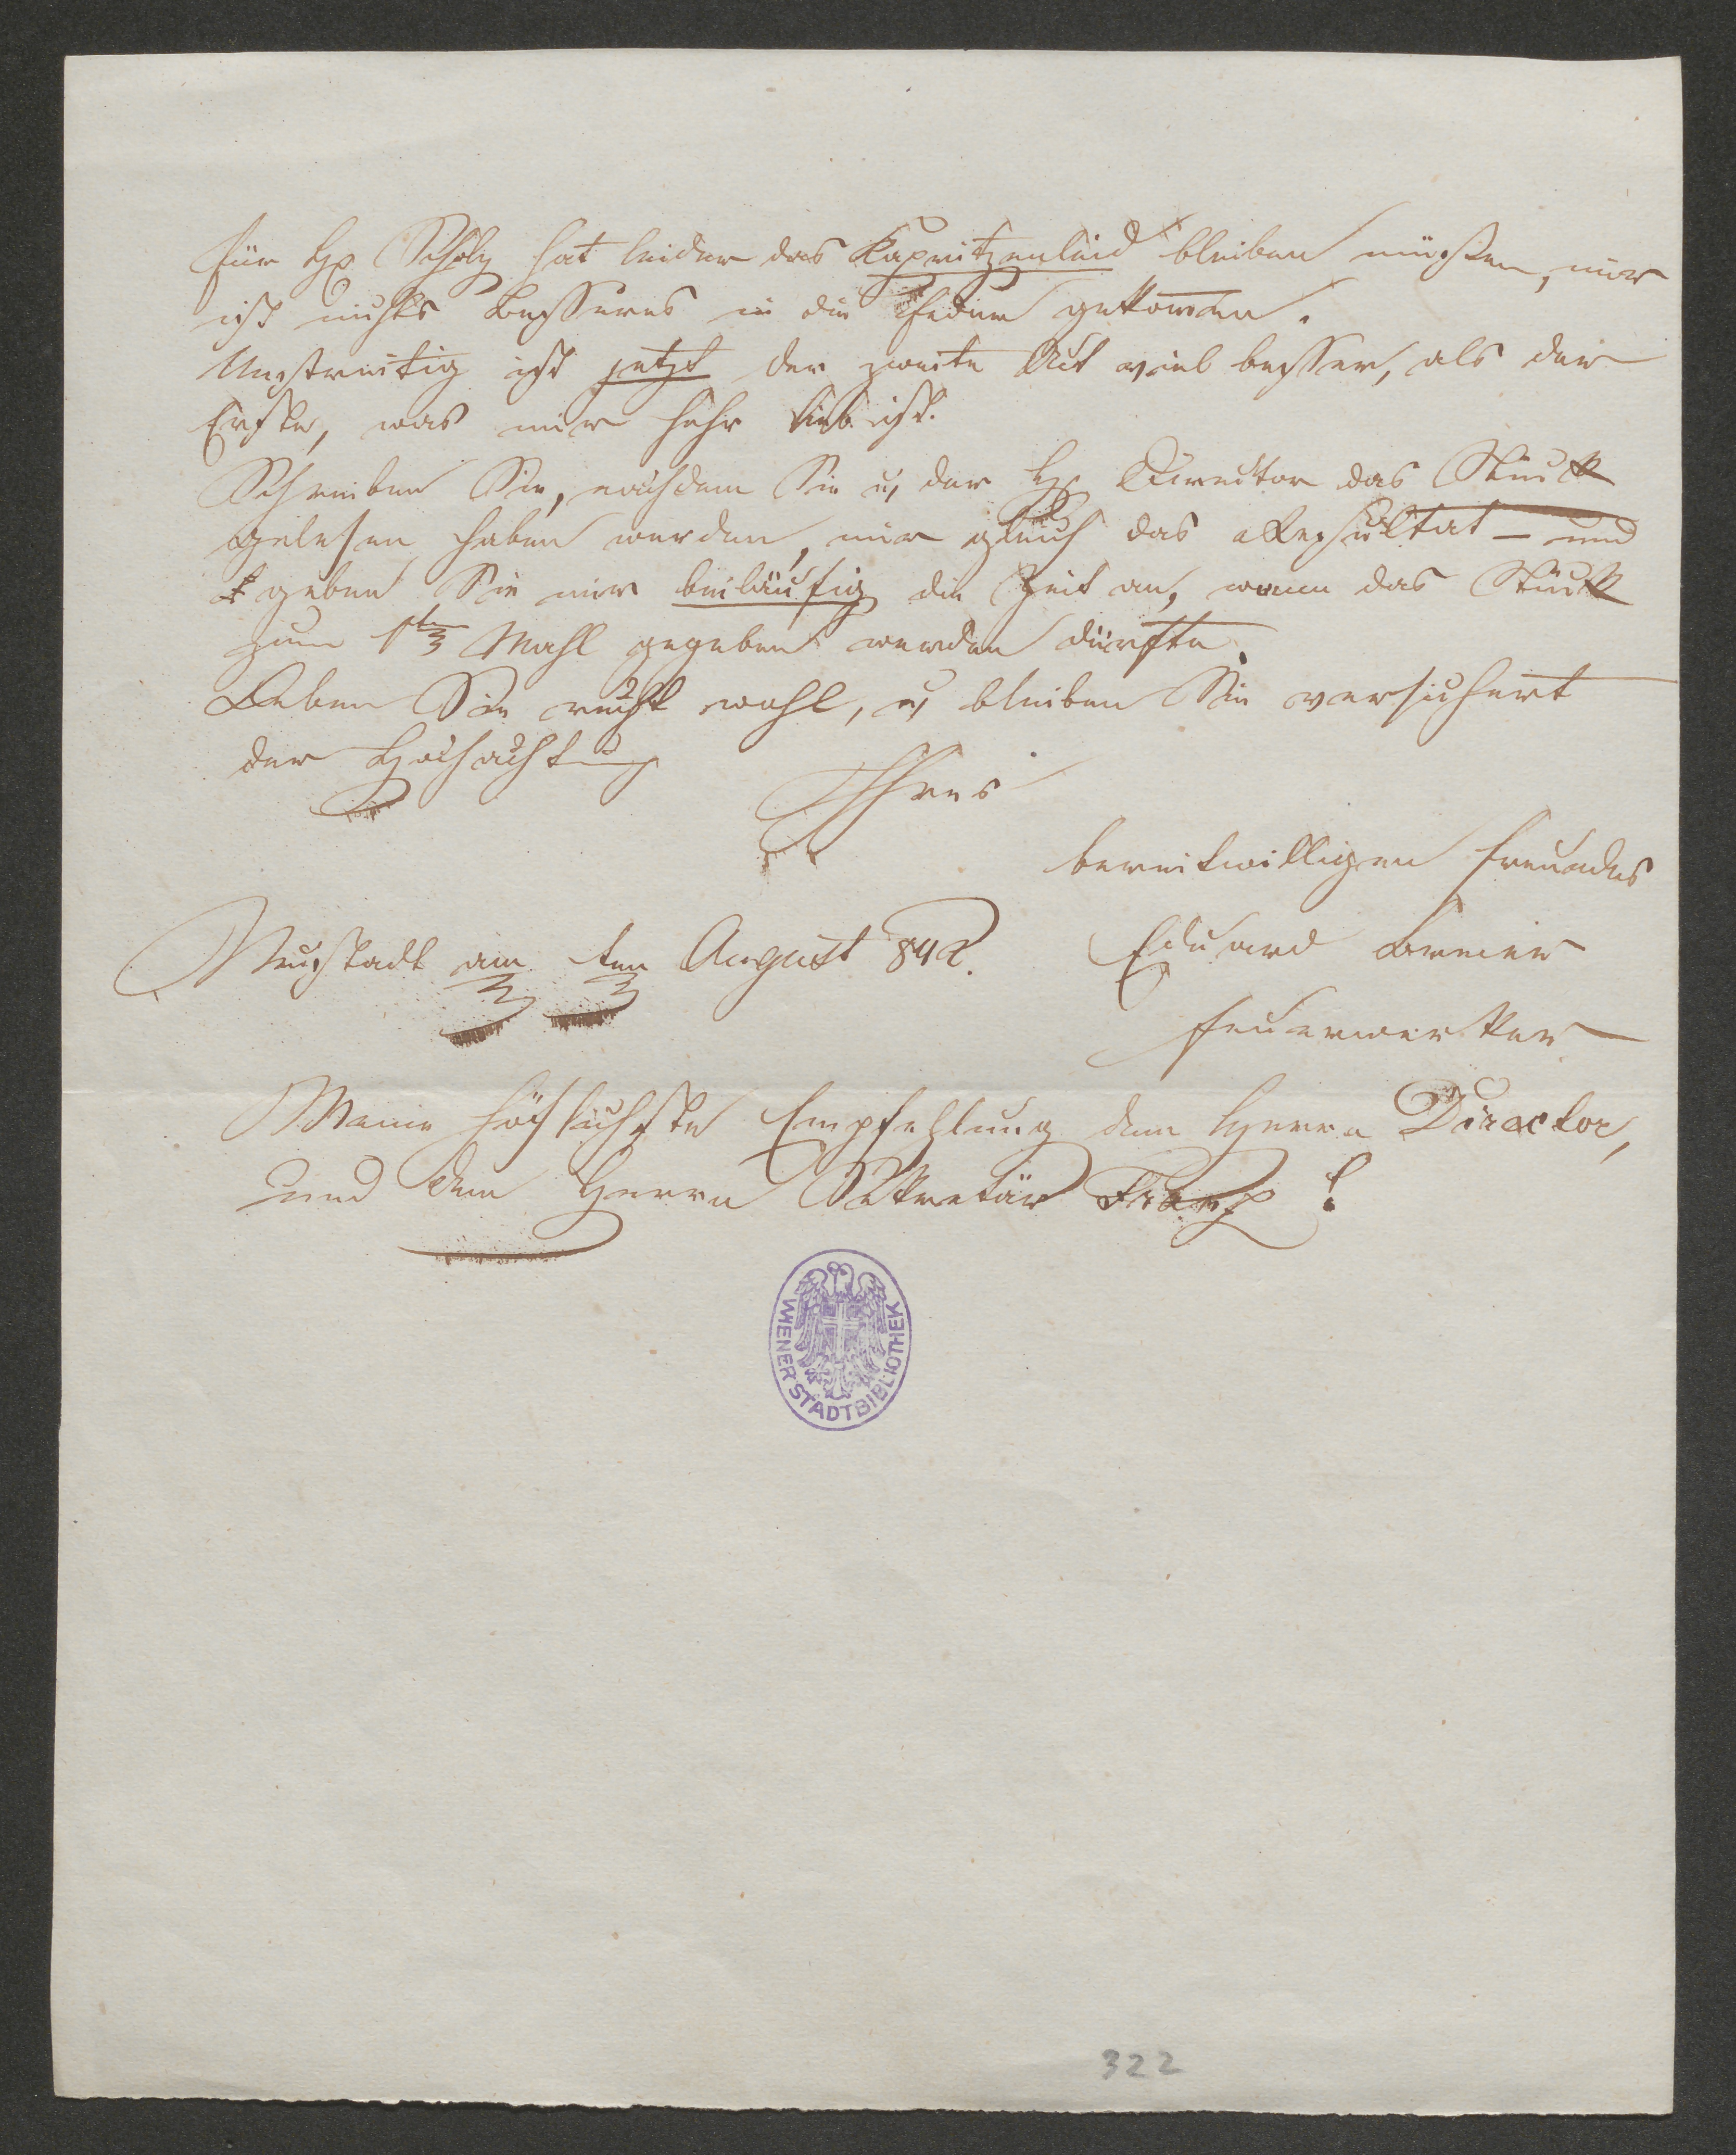 Für H͠ Scholz hat leider das Kapritzenlied bleiben müßen, mir
ist nichts Besseres in die Feder gekom̅en.
Unstreitig ist jetzt der zweite Act viel besser, als der
Erste, was mir sehr lieb ist.
Schreiben Sie, nachdem Sie u, der H͠ Director das Stück
gelesen haben werden, mir gleich das Resultat – und
geben Sie mir beiläufig die Zeit an, wann das Stück
zum 1ten Mahl gegeben werden dürfte.
Leben Sie recht wohl, u, bleiben Sie versichert
der Hochachtung
Ihres
bereitwilligen Freundes
Neustadt am ten August 842. Eduard Breier
Feuerwerker
Meine höflichste Empfehlung dem Herrn Director,
und dem Herrn Sekretär Franz!
WIENER STADTBIBLIOTHEK
322